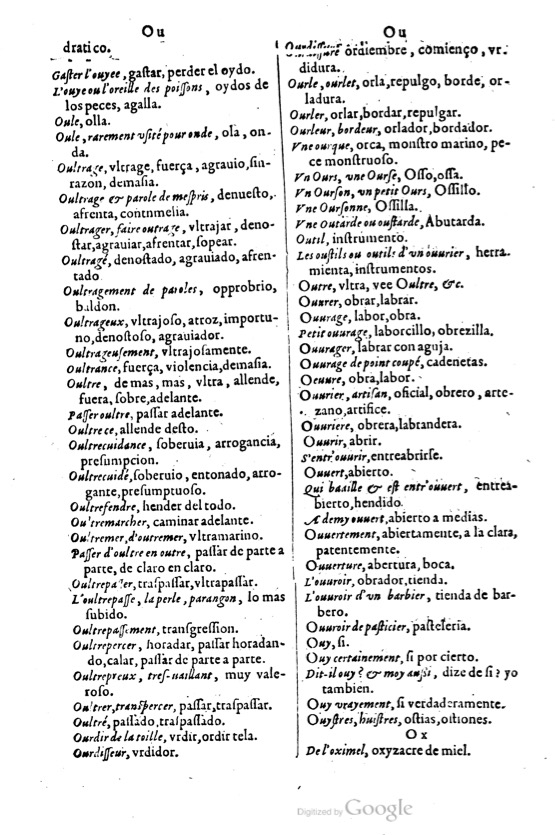 Ou
dratico.
Gaſter l'ouyee, gaſtar, perder el oydo.
L'ouye ou l'oreille des poiſſons, oydos de
los peces, agalla.
Oule, olla.
Oule, rarement vſité pour onde, ola, on-
da.
Oultrage, vltrage, fuerça, agrauio, ſin-
razon, demaſia.
Oultrage & parole de meſpris, denueſto,
afrenta, contumelia.
Oultrager, faire outrage, vltrajar, deno-
ſtar, agrauiar, afrentar, ſopear.
Oultragé, denoſtado, agrauiado, afren-
tado.
Oultragement de paroles, opprobrio,
baldon.
Oultrageux, vltrajoſo, atroz, importu-
no, denoſtoſo, agrauiador.
Oultrageuſement, vltrajoſamente.
Oultrance, fuerça, violencia, demaſia.
Oultre, de mas, mas, vltra, allende,
fuera, ſobre, adelante.
Paſſer oultre, paſſar adelante.
Oultre ce, allende deſto.
Oultrecuidance, ſoberuia, arrogancia,
preſumpcion.
Oultrecuidé, ſoberuio, entonado, arro-
gante, preſumptuoſo.
Oultrefendre, hender del todo.
Oultremarcher, caminar adelante.
Oultremer, d'outremer, vltramarino.
Paſſer d'oultre en outre, paſſar de parte a
parte, de claro en claro.
Oultrepaſſer, traſpaſſar, vltrapaſſar.
L'oultrepaſſe, la perle, parangon, lo mas
ſubido.
Oultrepaſſement, tranſgreſſion.
Oultrepercer, horadar, paſſar horadan-
do, calar, paſſar de parte a parte.
Oultrepreux, tres-uaillant, muy vale-
roſo.
Oultrer, tranſpercer, paſſar, traſpaſſar.
Oultré, paſſado, traſpaſſado.
Ourdir de la toille, vrdir, ordir tela.
Ourdiſſeur, vrdidor.
Ou
Ourdiſſure ordiembre, comienço, vr-
didura.
Ourle, ourlet, orla, repulgo, borde, or-
ladura.
Ourler, orlar, bordar, repulgar.
Ourleur, bordeur, orlador, bordador.
Vne ourque, orca, monſtro marino, pe-
ce monſtruoſo.
Vn Ours, vne Ourſe, Oſſo, oſſa.
Vn Ourſon, vn petit Ours, Oſſillo.
Vne Ourſonne, Oſſilla.
Vne Outarde ou ouſtarde, Abutarda.
Outil, inſtrumento.
Les ouſtils ou outils d'vn ouurier, herra-
mienta, inſtrumentos.
Outre, vltra, vee Oultre, &c.
Ouurer, obrar, labrar.
Ouurage, labor, obra.
Petit ouurage, laborcillo, obrezilla.
Ouurager, labrar con aguja.
Ouurage de point coupé, cadenetas.
Oeuure, obra, labor.
Ouurier, artiſan, oficial, obrero, arte-
zano, artifice.
Ouuriere, obrera, labrandera.
Ouurir, abrir.
S'entr'ouurir, entreabrirſe.
Ouuert, abierto.
Qui baaille & eſt entr'ouuert, entrea-
bierto, hendido.
A demy ouuert, abierto a medias.
Ouuertement, abiertamente, a la clara,
patentemente.
Ouuerture, abertura, boca.
L'ouuroir, obrador, tienda.
L'ouuroir d'vn barbier, tienda de bar-
bero.
Ouuroir de paſticier, paſteleria.
Ouy, ſi.
Ouy certainement, ſi por cierto.
Dit-il ouy? & moy auſsi, dize de ſi? yo
tambien.
Ouy vrayement, ſi verdaderamente.
Ouyſtres, huiſtres, oſtias, oſtiones.
Ox
De l'oximel, oxyzacre de miel.
Digitized by Google